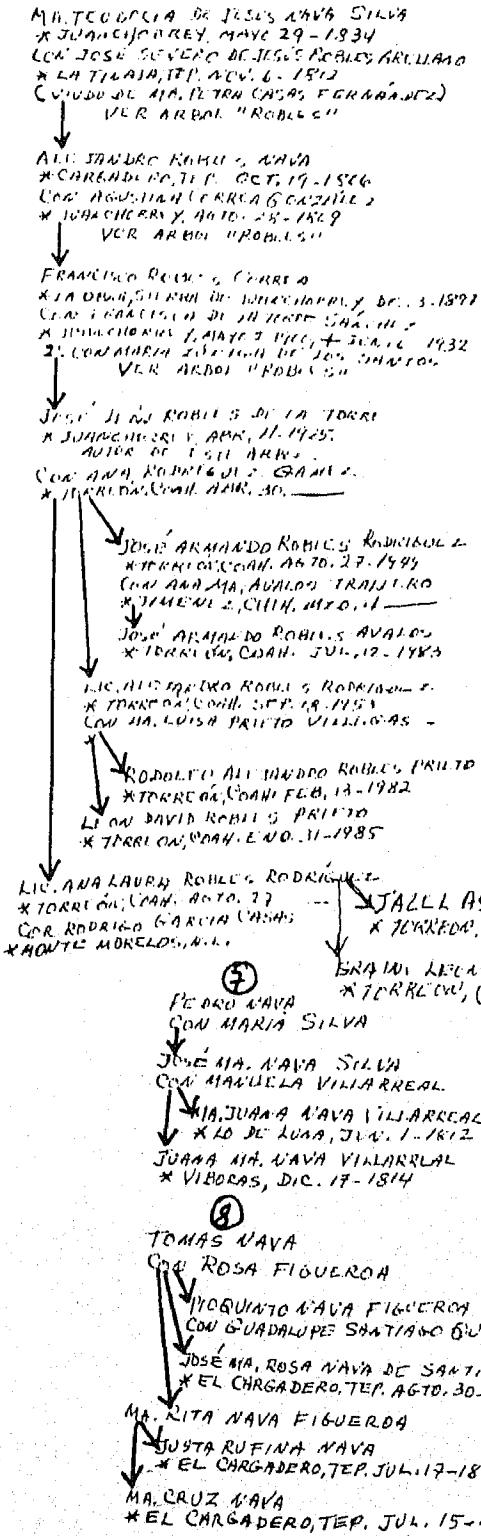 MA. TEODORCIA DE JESÚS NAVA SILVA
* JUANCHORREY, MAYO 29-1834
CON JOSÉ SEVERO DE JESÚS ROBLES ARELLANO
* LA TINAJA, TEP. NOV. 6-1812
(VIUDO DE MA. PETRA CASAS FERNÁNDEZ)
VER ARBOL "ROBLES"
ALEJANDRO ROBLES NAVA
* CARGADERO, TEP. OCT. 19-1866
CON AGUSTINA CORREA GONZÁLEZ
* JUANCHORREY, AGTO. 28-1869
VER ARBOL "ROBLES"
FRANCISCO ROBLES CORREA
SIERRA DE JUANCHORREY DIC. 3-1897
CON FRANCISCA DE LA TORRE SÁNCHEZ
* JUANCHORREY, MAYO 1932
2º CON MARIA ZÚÑIGA DE LOS SANTOS
VER ARBOL "ROBLES"
JOSÉ JESÚS ROBLES DE LA TORRE
* JUANCHORREY, ABR. 11-1925.
AUTOR DE ESTE ARBOL
CON ANA RODRÍGUEZ GAMEZ
* TORREÓN, COAH. ABR. 30.
JOSÉ ARMANDO ROBLES RODRIGUEZ
* TORREÓN, COAH. AGTO. 27-1949
CON ANA MA. AVALOS TRANJERO
* JIMENEZ, CHIH.
JOSÉ ARMANDO ROBLES AVALOS
* TORREÓN, COAH. JUL. 12-1983
LIC. ALEJANDRO ROBLES RODRIGUEZ
* TORREÓN, COAH. SEP. 18-1951
CON MA. LUISA PRIETO VILLEGAS -
*
RODOLFO ALEJANDRO ROBLES PRIETO
* TORREÓN, COAH. FEB. 13-1982
LEON DAVID ROBLES PRIETO
* TORREON, COAH. ENO. 31-1985
LIC. ANA LAURA ROBLES RODRÍGUEZ
* TORREÓN, COAH. AGTO. 27 ---
COR RODRIGO GARCIA CASAS
* MONTE MORELOS, N.L.
JALLL AS
* TORREON,
BRAINI LEON
* TORREON, (
7
PEDRO NAVA
CON MARIA SILVA
JOSÉ MA. NAVA SILVA
CON MANUELA VILLARREAL
MA. JUANA NAVA VILLARREAL
* LO DE LUNA, JUN. 1-1812
JUANA MA. NAVA VILLARREAL
* VIBORAS, DIC. 17-1814
8
TOMAS NAVA
CON ROSA FIGUEROA
PIOQUINTO NAVA FIGUEROA
CON GUADALUPE SANTIAGO GU
JOSÉ MA. ROSA NAVA DE SANTI
* EL CARGADERO, TEP. AGTO. 30-
MA. RITA NAVA FIGUEROA
JUSTA RUFINA NAVA
* EL CARGADERO, TEP. JUL. 17-18
MA. CRUZ NAVA
* EL CARGADERO, TEP. JUL. 15-